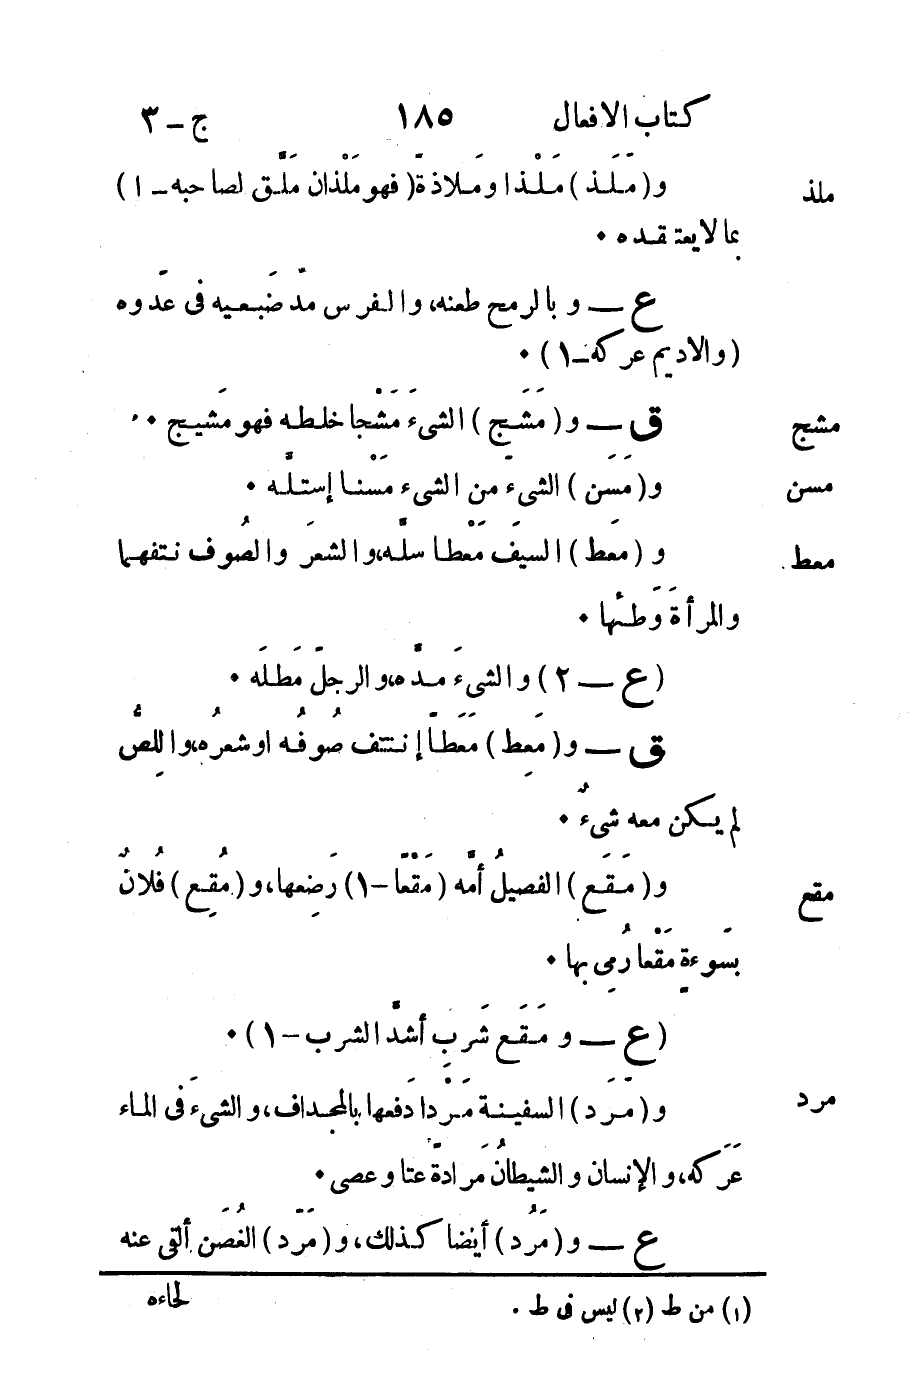 كتاب الافعال ١٨٥ ج-٣
ملذ و(مَلَّذ) مَلْذا ومَلاذةً (فهو مَلْذان مَلَّق لصاحبه-١)
بما لا يعتقده ٠
ع — و بالرمح طعنه، والفرس مدّ ضَبعيه فى عَدوه
(والاديم عركه-١) ٠
مشج ق — و (مَشَج) الشىءَ مَشْجا خلطه فهو مَشيج ٠
مسن و(مَسَن) الشىءَ من الشىء مَسْنا إستلّه ٠
معط و (معَط) السيفَ مَعْطا سلَّه، والشعرَ والصُوف نتفهما
والمرأةَ وَطئها ٠
(ع — ٢) والشىءَ مدَّه، والرجلَ مَطلَه ٠
ق — و(مَعِط) مَعَطاً إنتتف صُوفُه اوشعرُه، واللِصُّ
لم يكن معه شىءٌ ٠
مقع و(مَقَع) الفصيلُ أمَّه (مَقْعًا-١) رَضِعها، و(مُقِع) فُلانٌ
بسَوءةٍ مَقْعا رُمِى بها ٠
(ع — و مَقَع شَرِب أشدَّ الشرب-١) ٠
مرد و(مَرَد) السفينة مَرْدا دَفعها بالمجداف، والشىءَ فى الماء
عَرَكه، والإنسان والشيطانُ مَرادةً عتا وعصى ٠
ع — و(مَرُد) أيضا كذلك، و(مَرّد) الغُصَن ألقى عنه
لحاءه
(١) من ط (٢) ليس فى ط .